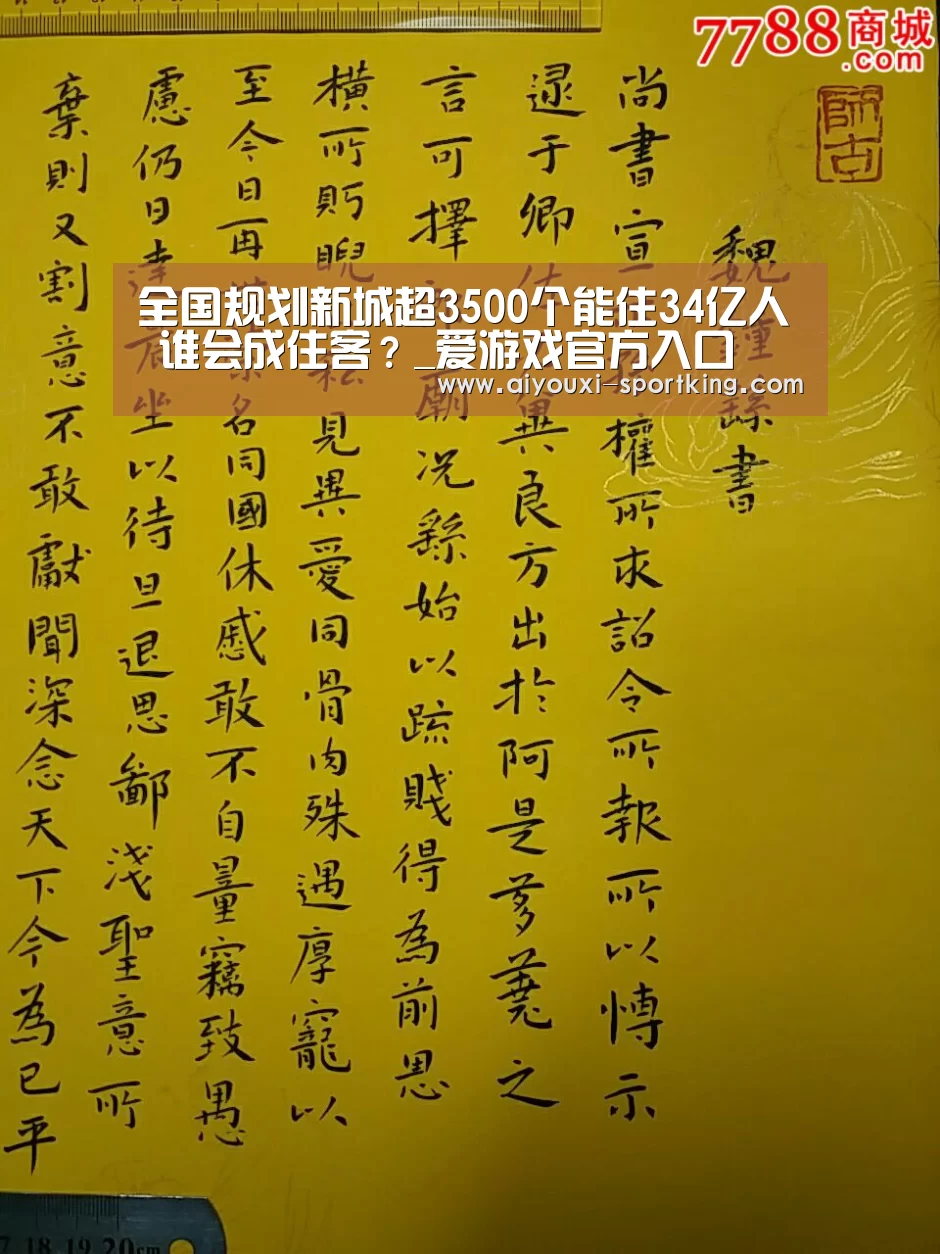 7788商城
.com
師古
魏鍾繇書
尚書宣權所求詔令所報所以愽示
逮于卿佐冀良方出於阿是芻蕘之
言可擇廟況繇始以疏賤得為前恩
橫所眄睨私見異愛同骨肉殊遇厚寵以
至今日再榮名同國休慼敢不自量竊致愚
慮仍日達坐以待旦退思鄙淺聖意所
棄則又割意不敢獻聞深念天下今為已平
全国规划新城超3500个能住34亿人
谁会成住客？_爱游戏官方入口
www.aiyouxi-sportking.com
18 19 20cm